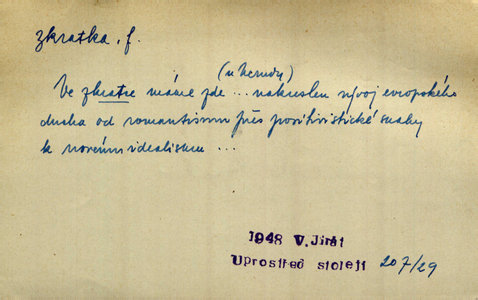 zkratka, f.
(u Nerudy)
Ve zkratce máme zde ... nakreslen vývoj evropského
ducha od romantismu přes positivistické snahy
k novému idealismu ...
1948 V. Jirát
Uprostřed století 207/29